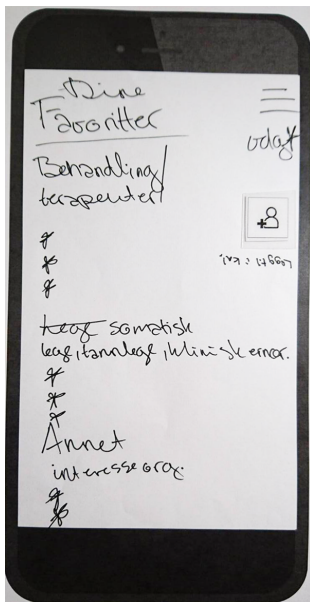 Dine
Favoritter
Behandling/
terapeuter
*
*
*
somatisk
lege, tannlege, klinisk ernær.
*
*
*
Annet
interesseorg.
*
*